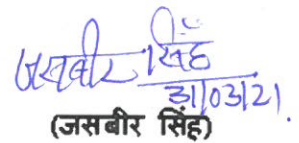 जसबीर सिंह
31/03/21.
(जसबीर सिंह)